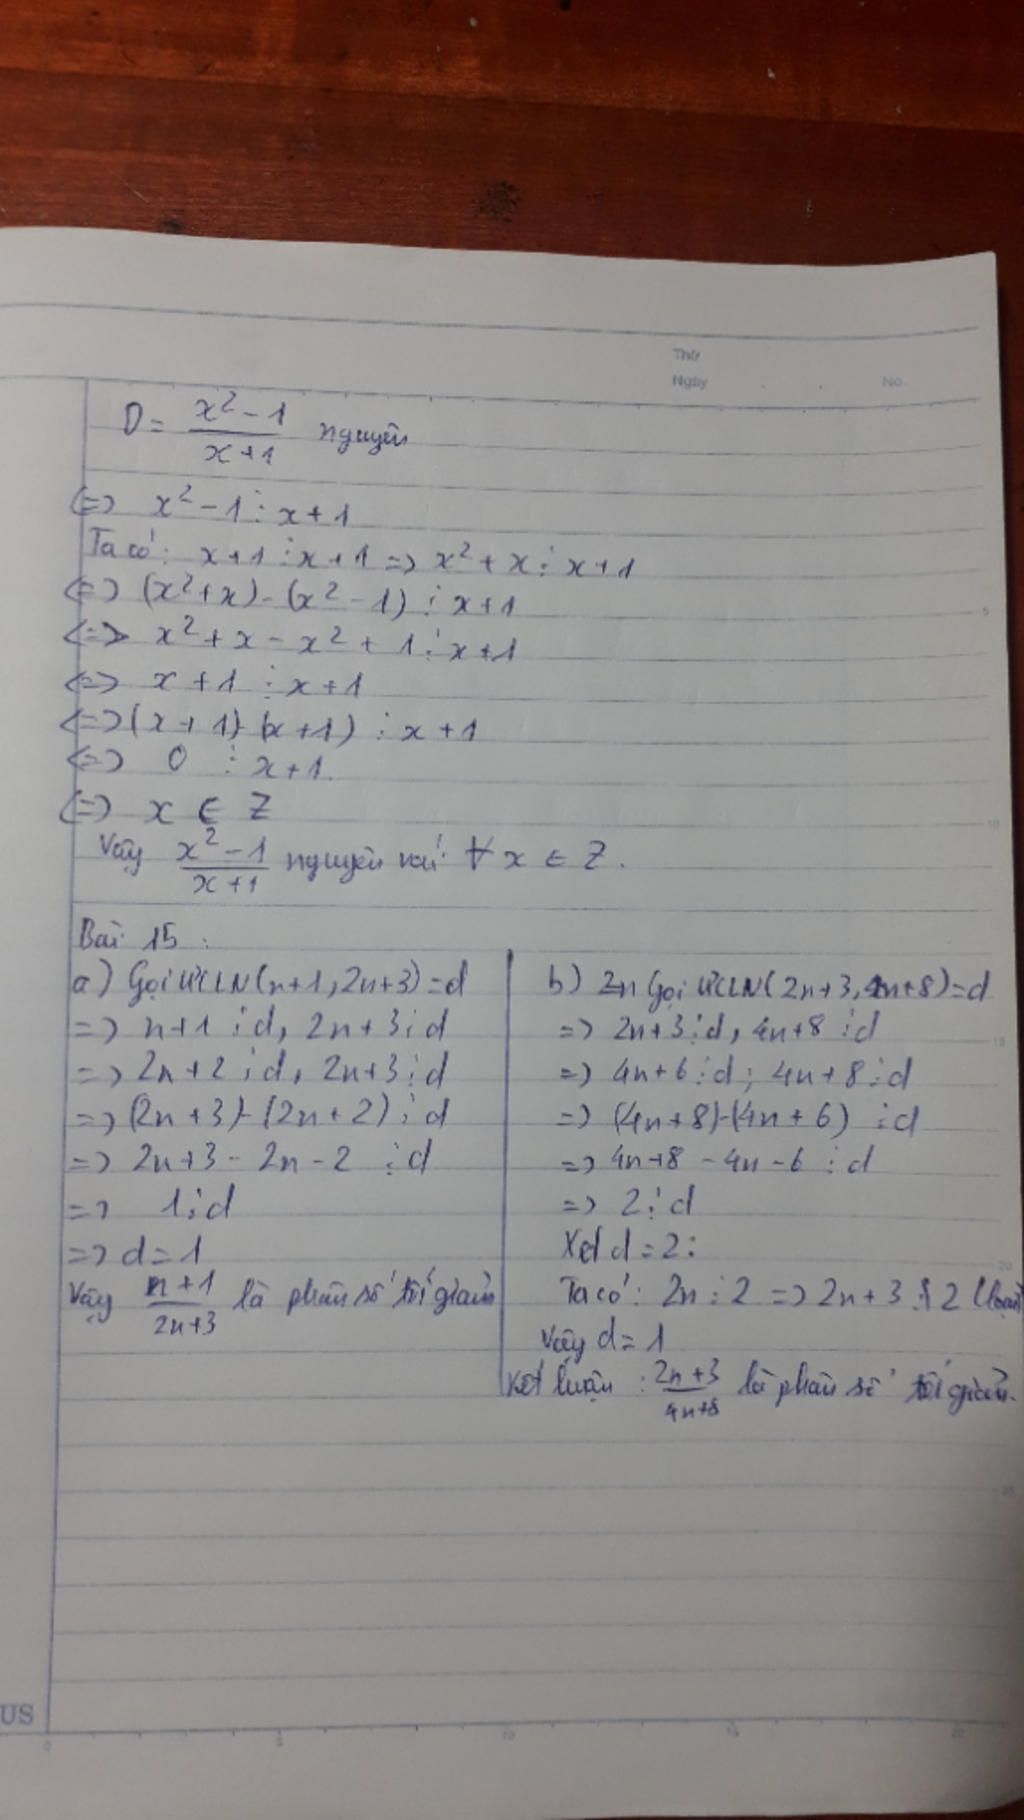 Thứ
Ngày No.
D = \frac{x² - 1}{x + 1} nguyên
<=> x² - 1 ⋮ x + 1
Ta có: x + 1 ⋮ x + 1 => x² + x ⋮ x + 1
<=> (x² + x) - (x² - 1) ⋮ x + 1
<=> x² + x - x² + 1 ⋮ x + 1
<=> x + 1 ⋮ x + 1
<=> (x + 1) - (x + 1) ⋮ x + 1
<=> 0 ⋮ x + 1.
<=> x ∈ Z
Vậy \frac{x² - 1}{x + 1} nguyên với ∀ x ∈ Z.
Bài 15:
a) Gọi ƯCLN(n+1, 2n+3) = d
=> n+1 ⋮ d, 2n+3 ⋮ d
=> 2n+2 ⋮ d, 2n+3 ⋮ d
=> (2n+3) - (2n+2) ⋮ d
=> 2n+3 - 2n - 2 ⋮ d
=> 1 ⋮ d
=> d = 1
Vậy \frac{n+1}{2n+3} là phân số tối giản
b) Gọi ƯCLN(2n+3, 4n+8) = d
=> 2n+3 ⋮ d, 4n+8 ⋮ d
=> 4n+6 ⋮ d; 4n+8 ⋮ d
=> (4n+8) - (4n+6) ⋮ d
=> 4n+8 - 4n - 6 ⋮ d
=> 2 ⋮ d
Xét d = 2:
Ta có: 2n ⋮ 2 => 2n+3 ⋮̸ 2 (loại)
Vậy d = 1
Kết luận: \frac{2n+3}{4n+8} là phân số tối giản.
US
0 5 10 15 20